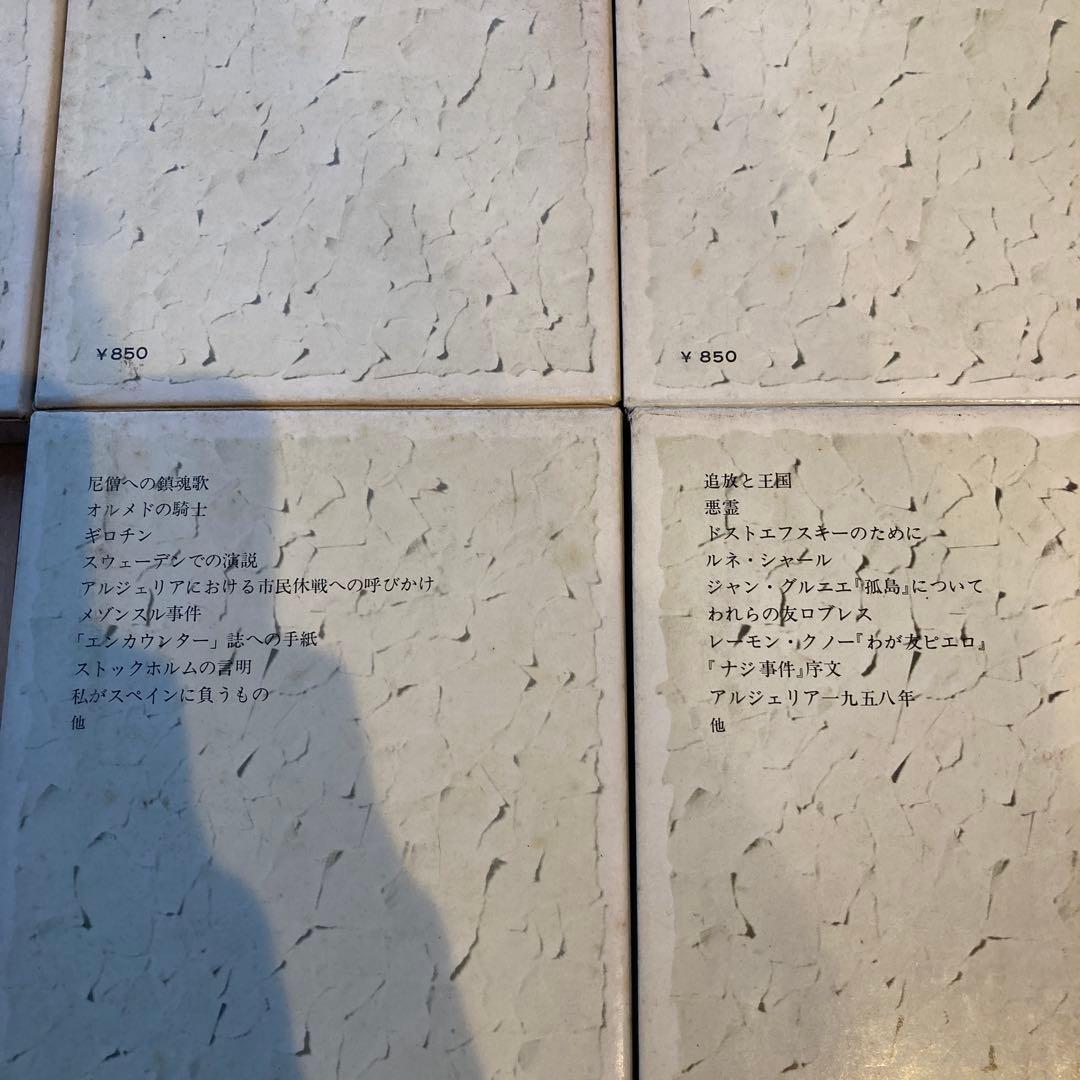 ¥850
¥850
尼僧への鎮魂歌
オルメドの騎士
ギロチン
スウェーデンでの演説
アルジェリアにおける市民休戦への呼びかけ
メゾンスル事件
「エンカウンター」誌への手紙
ストックホルムの言明
私がスペインに負うもの
他
追放と王国
悪霊
ドストエフスキーのために
ルネ・シャール
ジャン・グルニエ『孤島』について
われらの友ロブレス
レーモン・クノー『わが友ピエロ』
『ナジ事件』序文
アルジェリア一九五八年
他